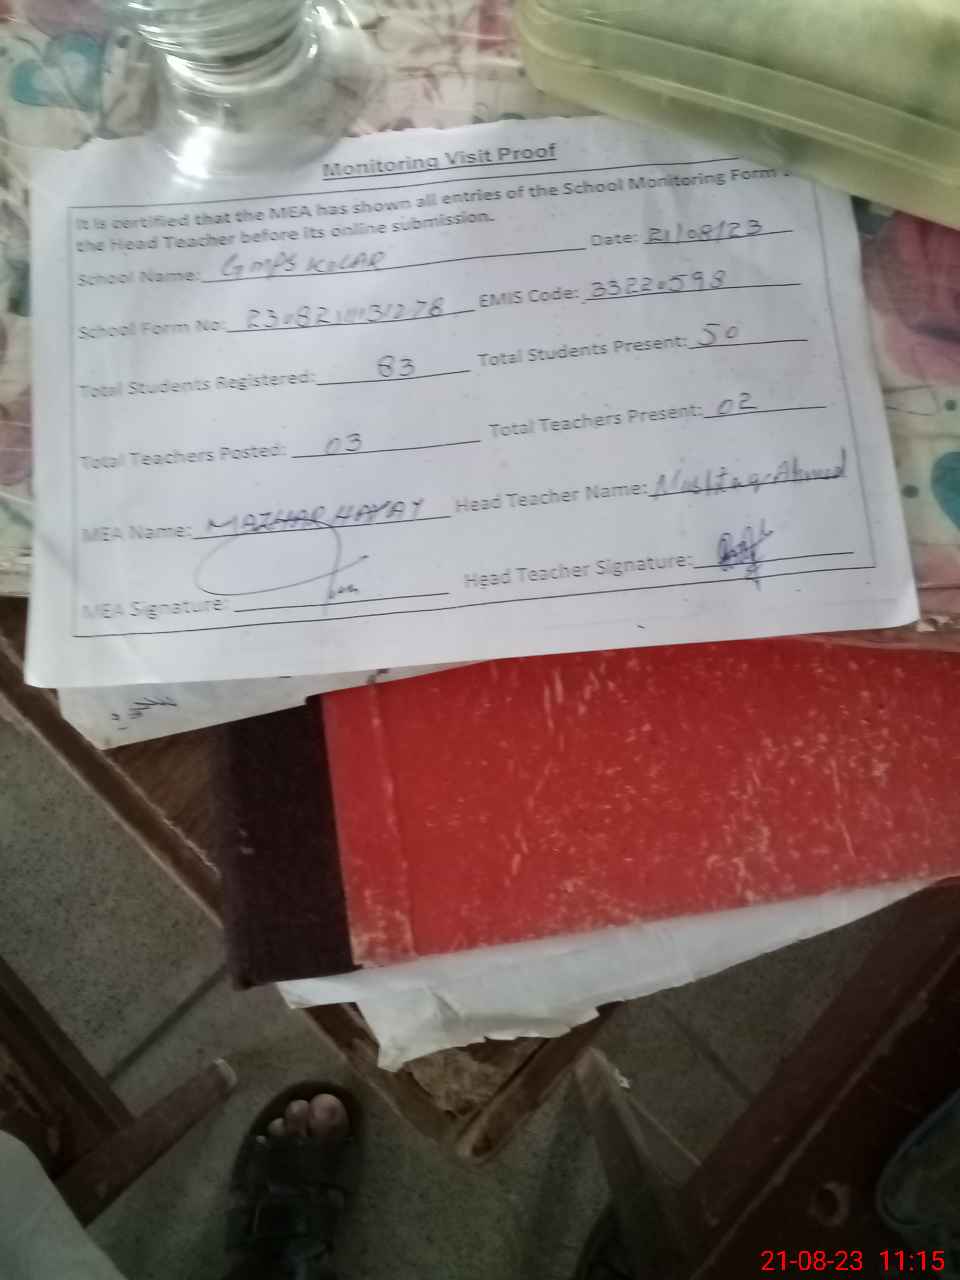 Monitoring Visit Proof
It is certified that the MEA has shown all entries of the School Monitoring Form
the Head Teacher before its online submission.
School Name: GMPS KOLAR Date: 21/08/23
School Form No: EMIS Code: 33220598
Total Students Registered: 83 Total Students Present: 50
Total Teachers Posted: 03 Total Teachers Present: 02
MEA Name: MAZHAR HAYAT Head Teacher Name: Mushtaq Ahmed
MEA Signature: Head Teacher Signature:
21-08-23 11:15